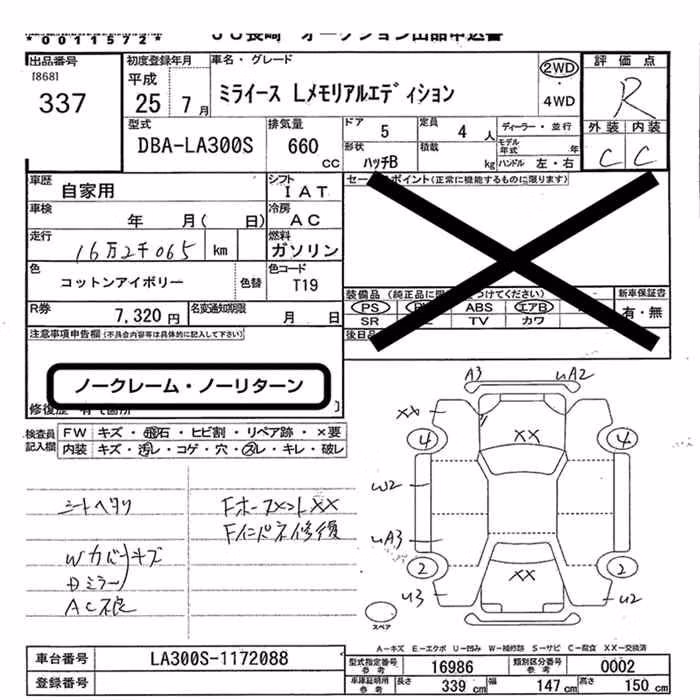 *0011572* JU長崎 オークション出品申込書
出品番号 初度登録年月 車名・グレード 評価点
[868] 平成 2WD
337 25 7月 ミライース Lメモリアルエディション ・ R
4WD
型式 排気量 ドア 定員 ディーラー・並行 外装 内装
DBA-LA300S 660 CC 5 4人 モデル年式 年 C C
形状 積載 ハッチB kg ハンドル 左・右
車歴 自家用 シフト IAT セールスポイント(正常に機能するものに限ります)
車検 年 月( 日) 冷房 AC
走行 16万2千065 km 燃料 ガソリン
色 コットンアイボリー 色替 色コード T19
装備品 (純正品に 新車保証書
R券 7,320円 名変通知期限 月 日 PS ABS エアB 有・無
SR TV カワ
注意事項申告欄(不具合内容等は具体的に記入して下さい) 後日品
ノークレーム・ノーリターン
修復歴 有
検査員記入欄 FW キズ・飛石・ヒビ割・リペア跡・×要
内装 キズ・汚レ・コゲ・穴・スレ・キレ・破レ
A3 uA2
XX
4 XX 4
シートヘタリ FホースメントXX W2
Fインパネ修復
uA3
Wカバーキズ
Dミラー
AC不良
2 XX 2
u3 u2
スペア
A-キズ E-エクボ U-凹み W-補修跡 S-サビ C-腐食 XX-交換済
車台番号 LA300S-1172088 型式指定番号参考 16986 類別区分番号参考 0002
登録番号 車庫証明用参考 長さ 339cm 幅 147cm 高さ 150cm